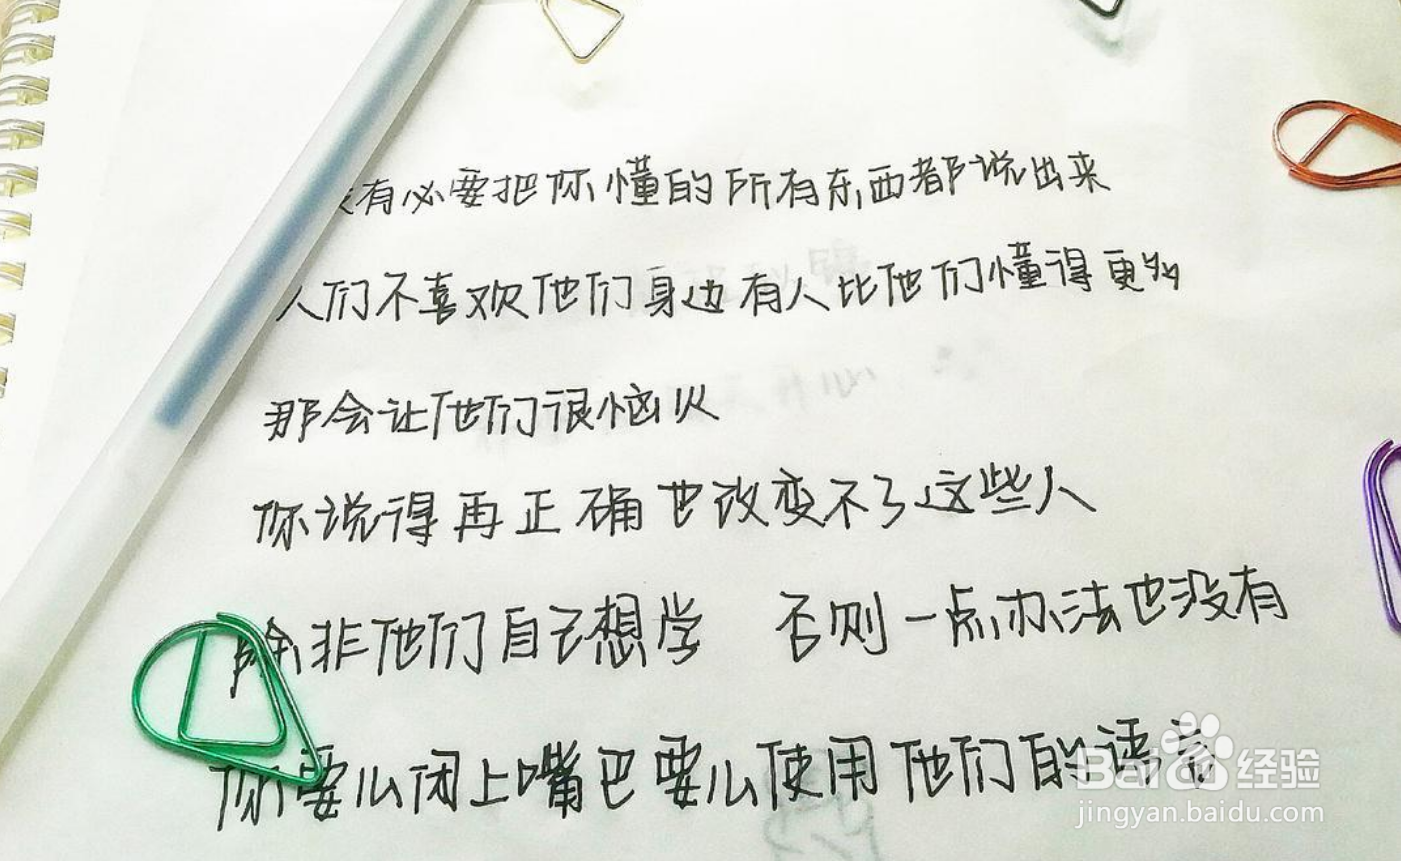 没有必要把你懂的所有东西都说出来
人们不喜欢他们身边有人比他们懂得更多
那会让他们很恼火
你说得再正确也改变不了这些人
除非他们自己想学 否则一点办法也没有
你要么闭上嘴巴要么使用他们的语言
Bai 经验
jingyan.baidu.com